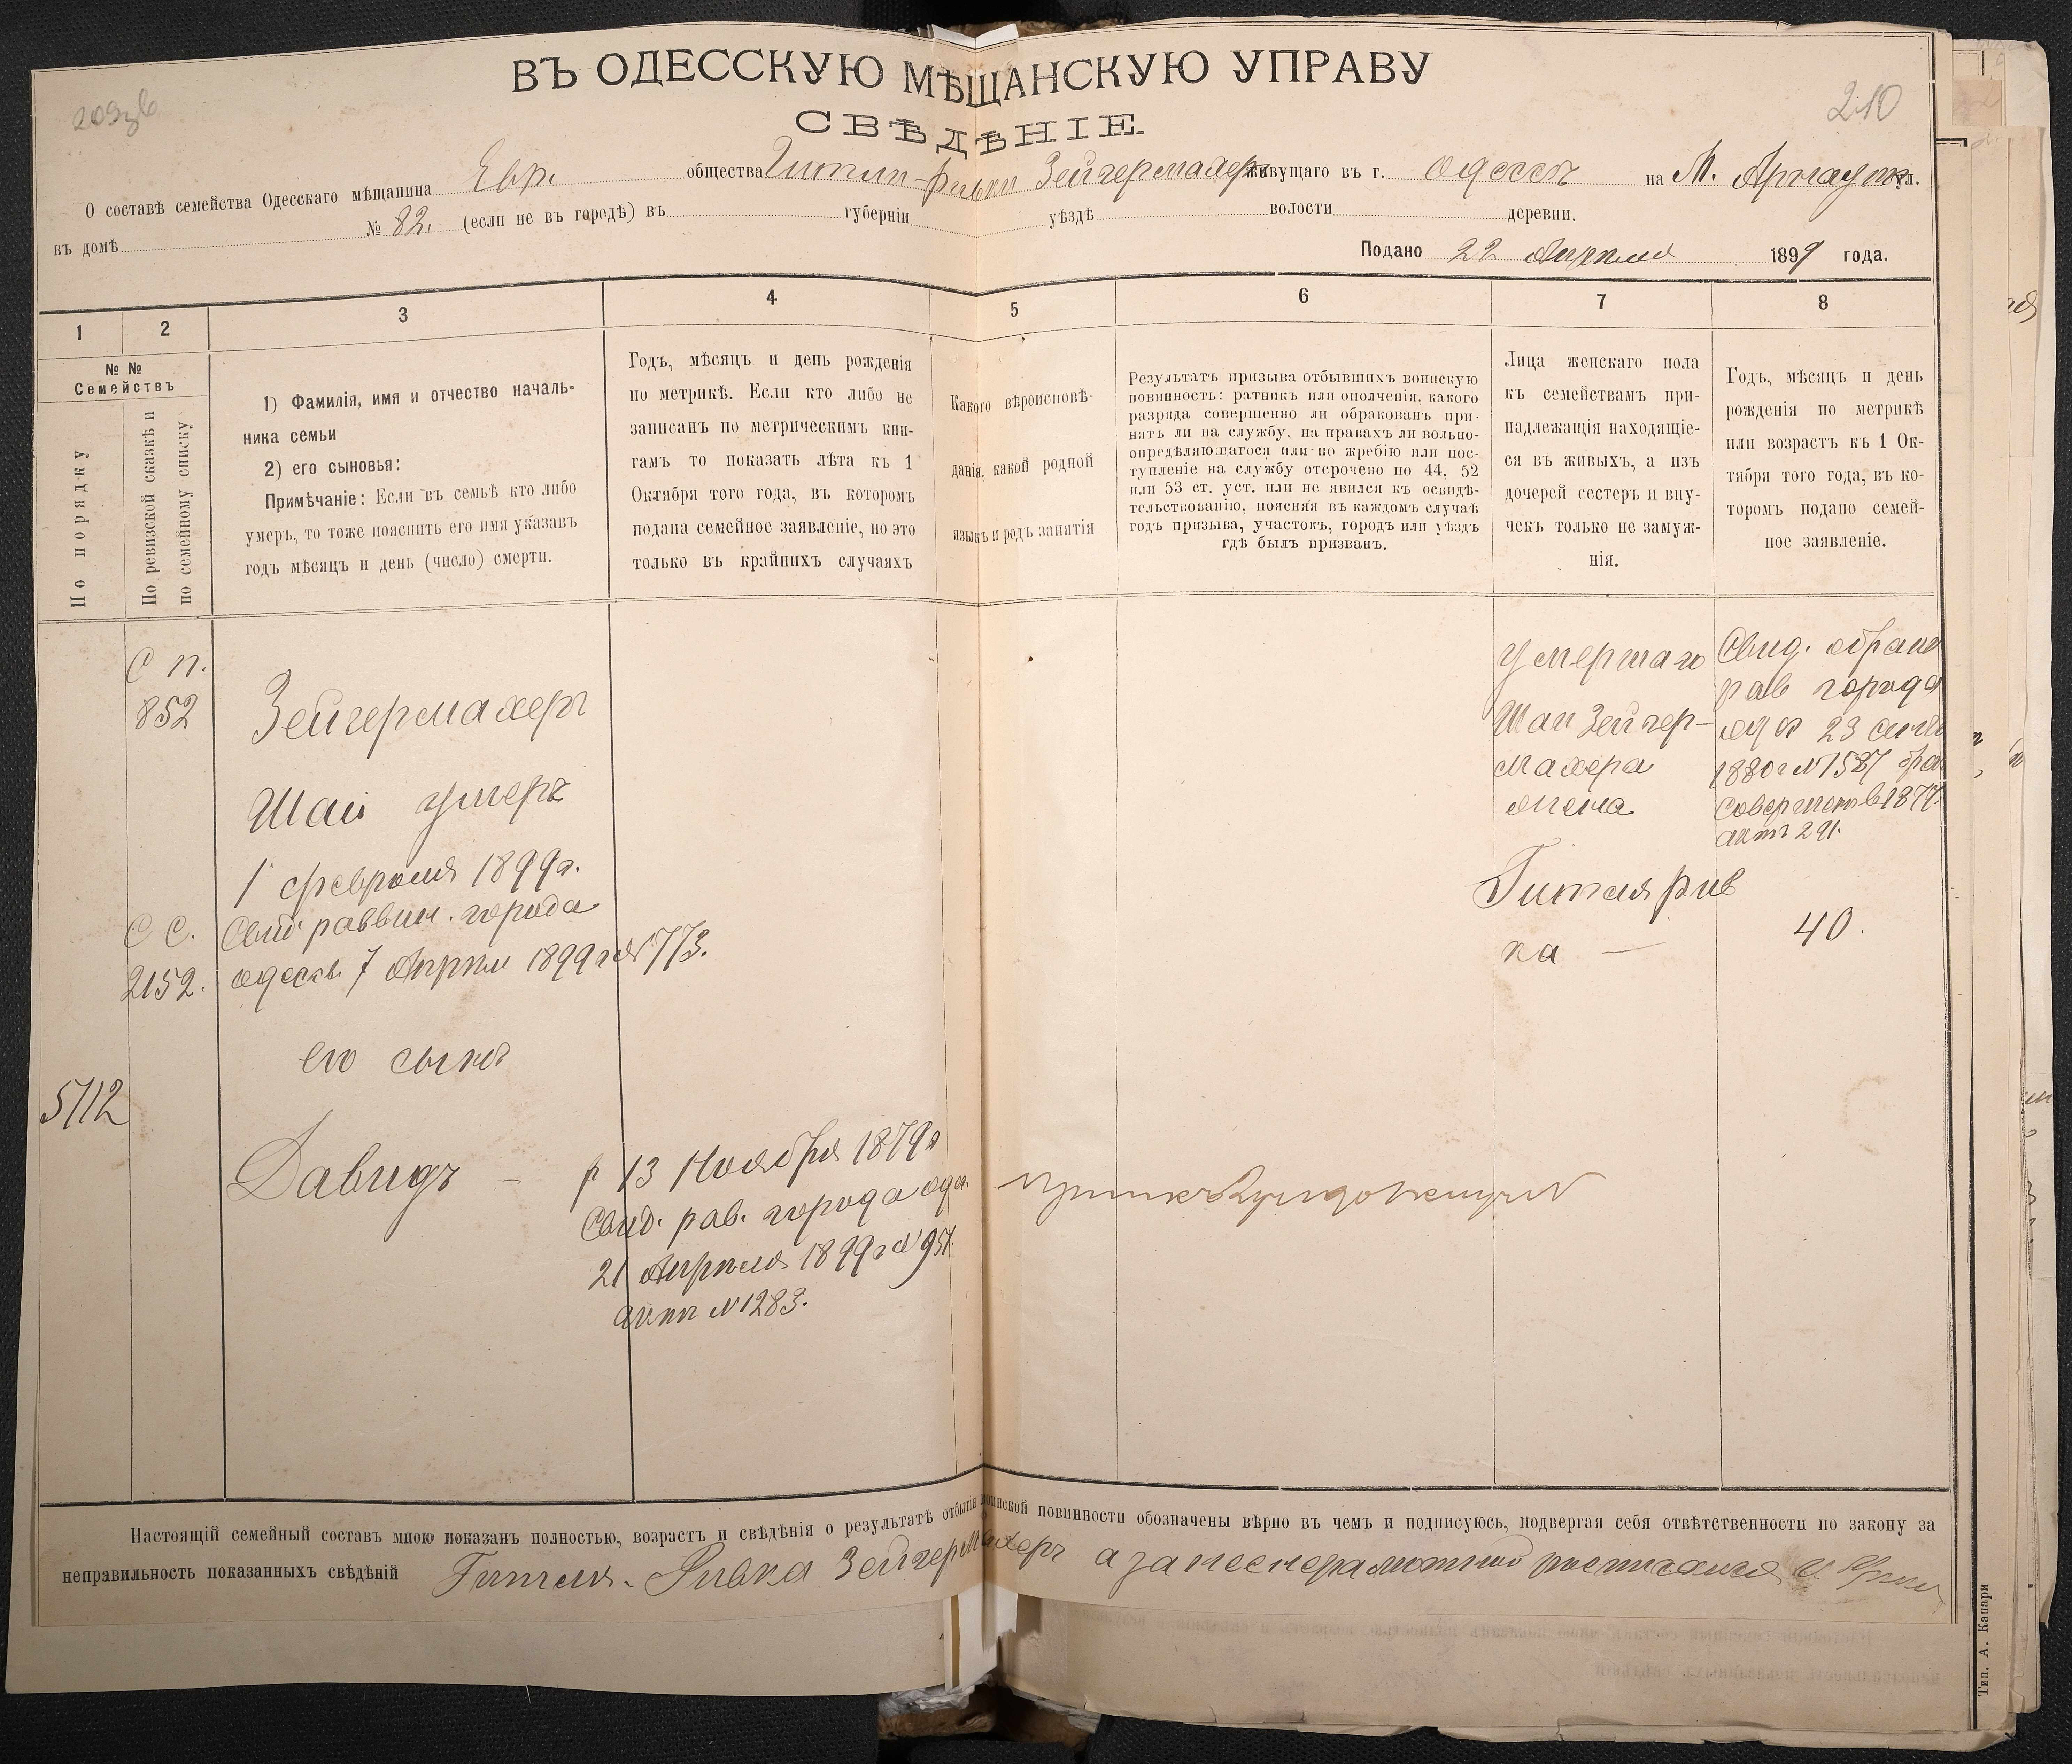 ВЪ ОДЕССКУЮ МѢЩАНСКУЮ УПРАВУ
СВѢДѢНІЕ.
210
О составѣ семейства Одесскаго мѣщанина Евр. общества Гитли-Ривки Зейгермахеръ живущаго въ г. Одессѣ на М. Арнаутск ул.
въ домѣ № 82. (если не въ городѣ) въ губерніи уѣздѣ волости деревни.
Подано 22 Апрѣля 1899 года.
1
2
3
4
5
6
7
8
№ №
Семействъ
По порядку
По ревизской сказкѣ и
по семейному списку
1) Фамилія, имя и отчество началь-
ника семьи
2) его сыновья:
Примѣчаніе: Если въ семьѣ кто либо
умеръ, то тоже пояснить его имя указавъ
годъ мѣсяцъ и день (число) смерти.
Годъ, мѣсяцъ и день рожденія
по метрикѣ. Если кто либо не
записанъ по метрическимъ кни-
гамъ то показать лѣта къ 1
Октября того года, въ которомъ
подана семейное заявленіе, но это
только въ крайнихъ случаяхъ
Какого вѣроисповѣ-
данія, какой родной
языкъ и родъ занятія
Результатъ призыва отбывшихъ воинскую
повинность: ратникъ или ополченія, какого
разряда совершенно ли обракованъ при-
нятъ ли на службу, на правахъ ли вольно-
опредѣляющагося или по жребію или пос-
тупленіе на службу отсрочено по 44, 52
или 53 ст. уст. или не явился къ освидѣ-
тельствованію, поясняя въ каждомъ случаѣ
годъ призыва, участокъ, городъ или уѣздъ
гдѣ былъ призванъ.
Лица женскаго пола
къ семействамъ при-
надлежащія находящіе-
ся въ живыхъ, а изъ
дочерей сестеръ и вну-
чекъ только не замуж-
нія.
Годъ, мѣсяцъ и день
рожденія по метрикѣ
или возрастъ къ 1 Ок-
тября того года, въ ко-
торомъ подано семей-
ное заявленіе.
С п.
852
С С.
2152.
5112
Зейгермахеръ
Шаи умеръ
1 февраля 1899 г.
Свид раввин. города
Одессы 7 Апрѣля 1899 г № 1773.
его сынъ
Давидъ -
р 13 Ноября 1879 г
Свид. рав. города Одес.
21 Апрѣля 1899 г № 951.
актъ № 1283.
умершаго
Шаи Зейгер-
махера
жена
Гитля Рив
ка —
Свид. о бракѣ
рав города
1880 г № 1587 бра
соверженъ в 1877.
актъ 291.
40.
Настоящій семейный составъ мною показанъ полностью, возрастъ и свѣдѣнія о результатѣ отбытія воинской повинности обозначены вѣрно въ чемъ и подписуюсь, подвергая себя отвѣтственности по закону за
неправильность показанныхъ свѣдѣній Гитля-Ривка Зейгермахеръ а за нее неграмотной росписался
Тип. А. Капари